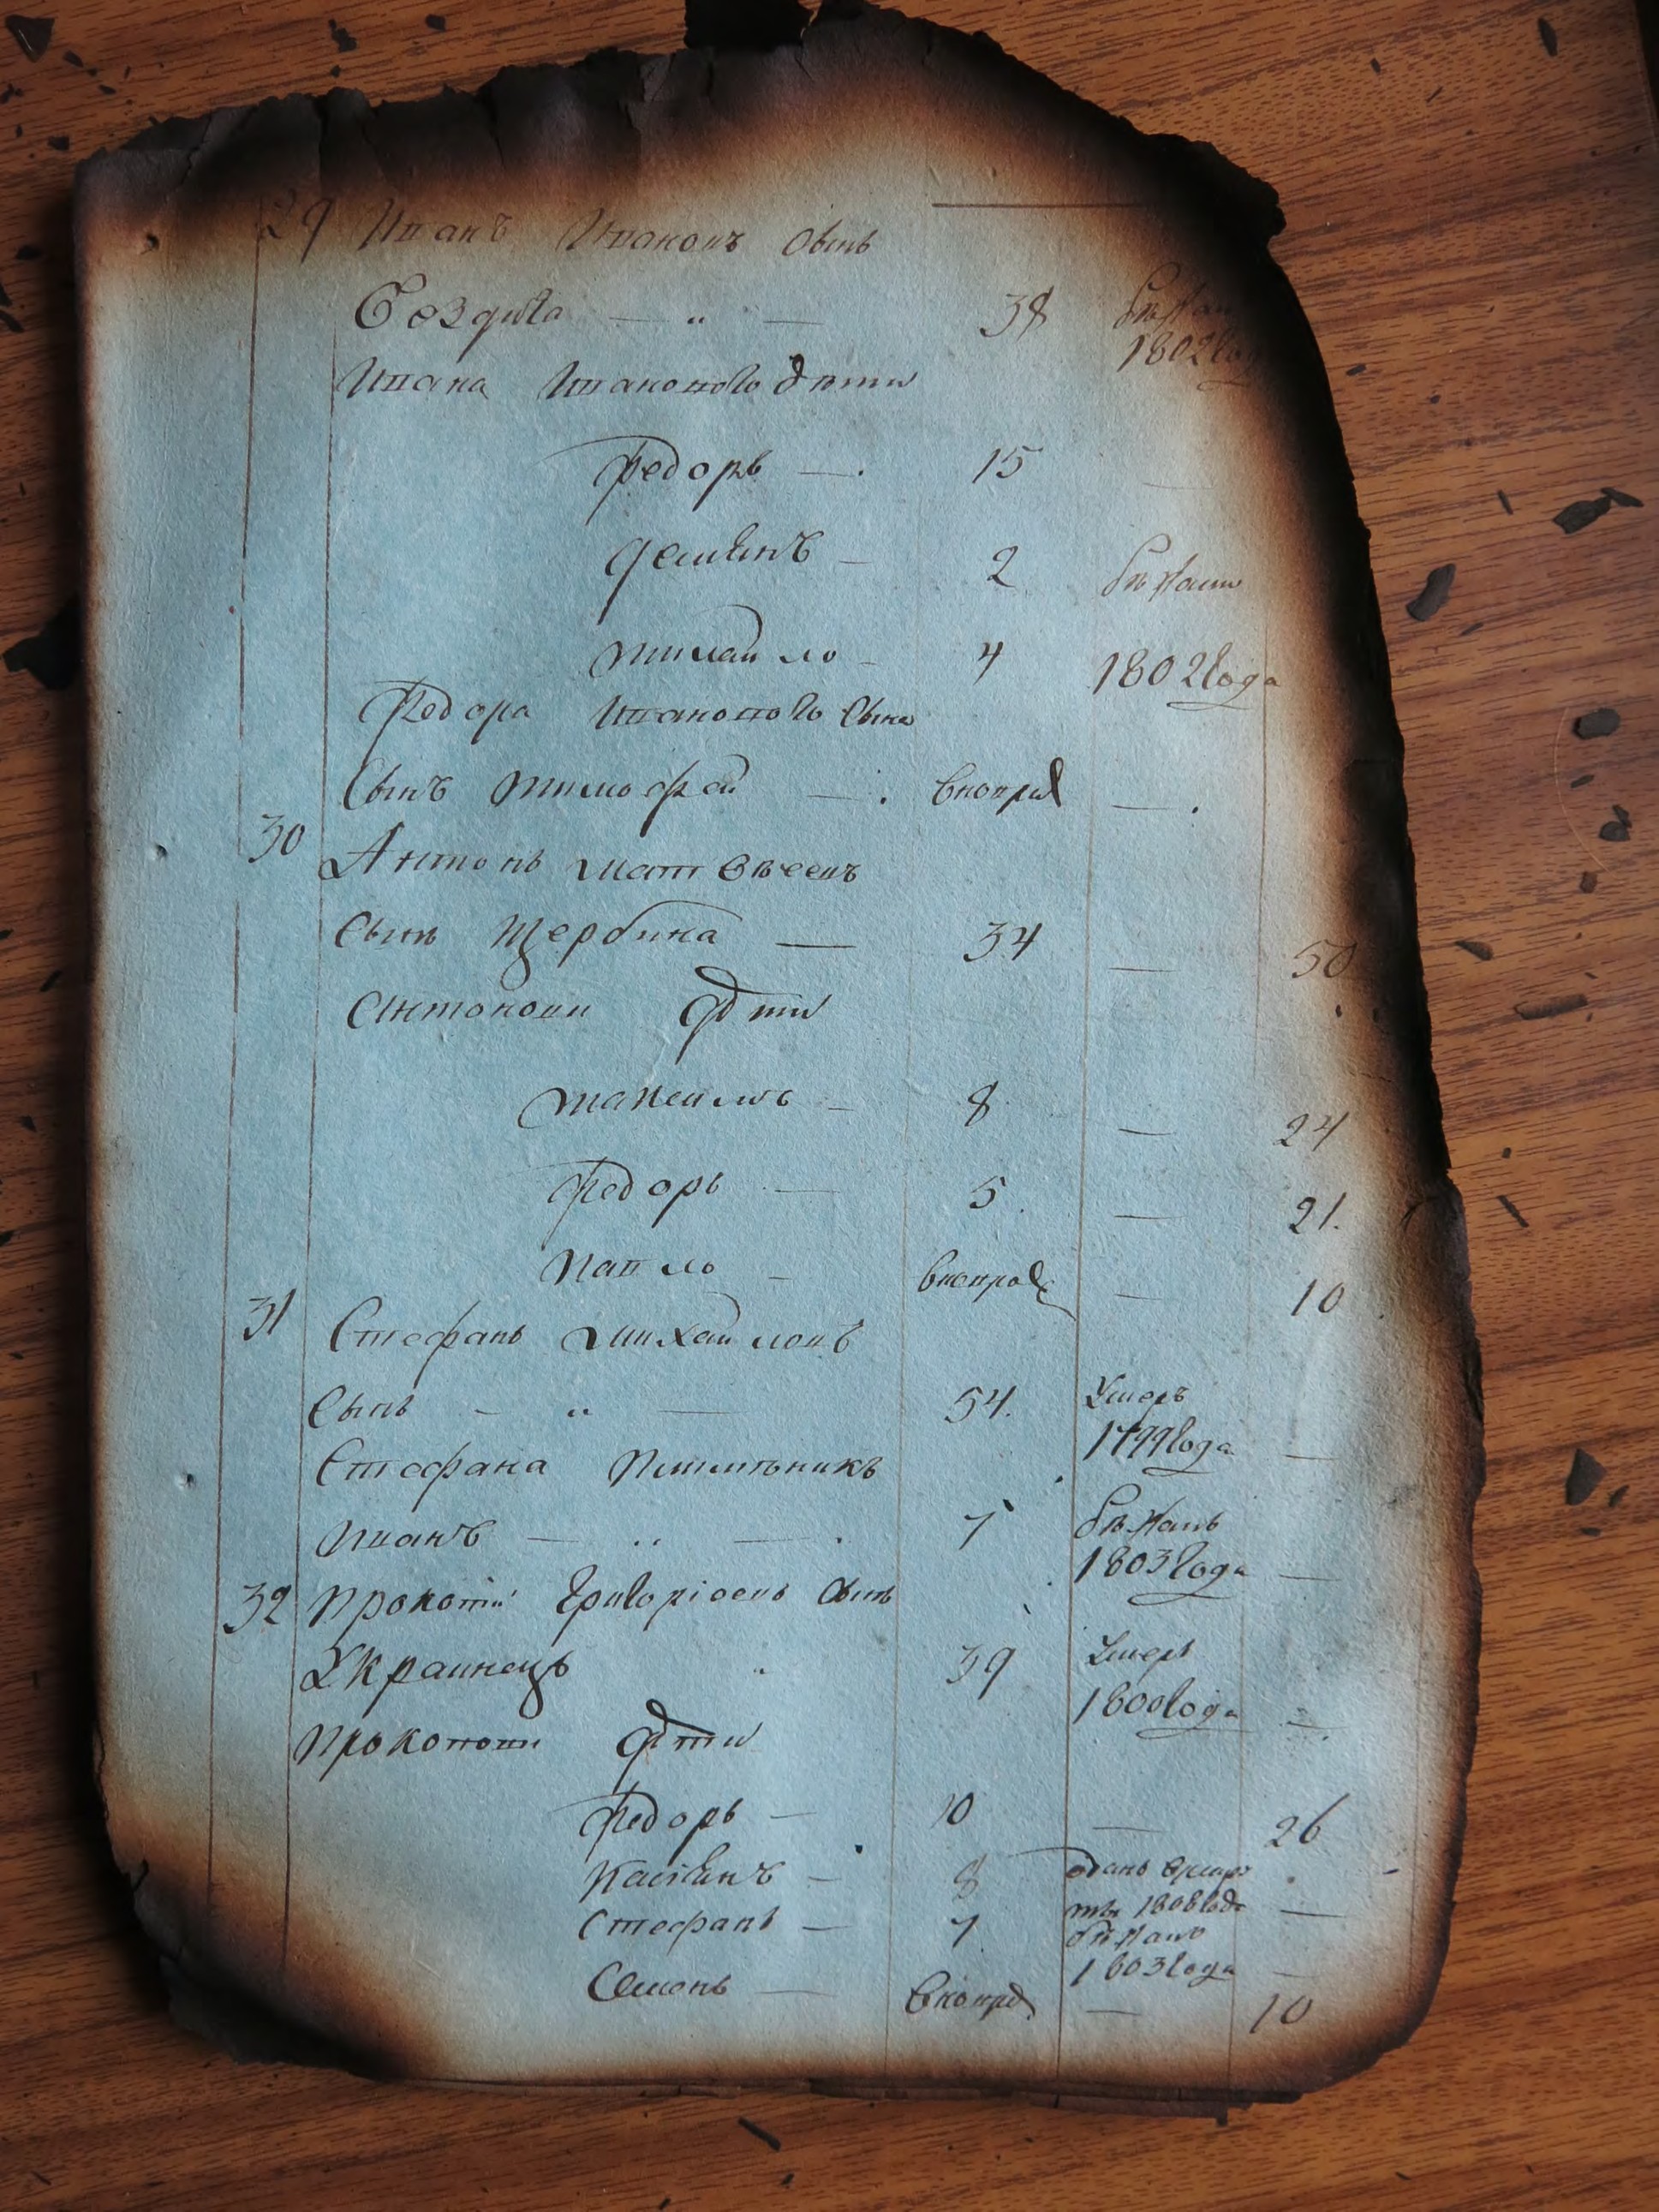 29 Иванъ Ивановъ сынъ
38 бѣжал
1802 год
Ивана Иванового дѣти
Федоръ — 15
Демянъ — 2 бѣжали
Михайло — 4 1802 года
Федора Иванового сына
Сынъ Тимофей — вновь рож —
30 Антонъ Матвѣевъ
сынъ Щербина — 34 — 50
Антоновы дѣти
Максимъ — 8 — 24
Федоръ — 5 — 21.
Павло — — 10
31 Стефанъ Михайловъ
Сынъ — „ — 54. Умеръ
1799 года —
Стефана
Иванъ — „ — 7 бѣжалъ
1803 года —
32 Прокопій Григоріевъ сынъ
Украинецъ „ 39 умеръ
1800 года —
Прокоповы дѣти
Федоръ — 10 — 26
Касянъ — 8 отданъ в рекру
ты 1808 года —
Стефанъ — 7 бѣжалъ
1803 года —
Семенъ — — 10